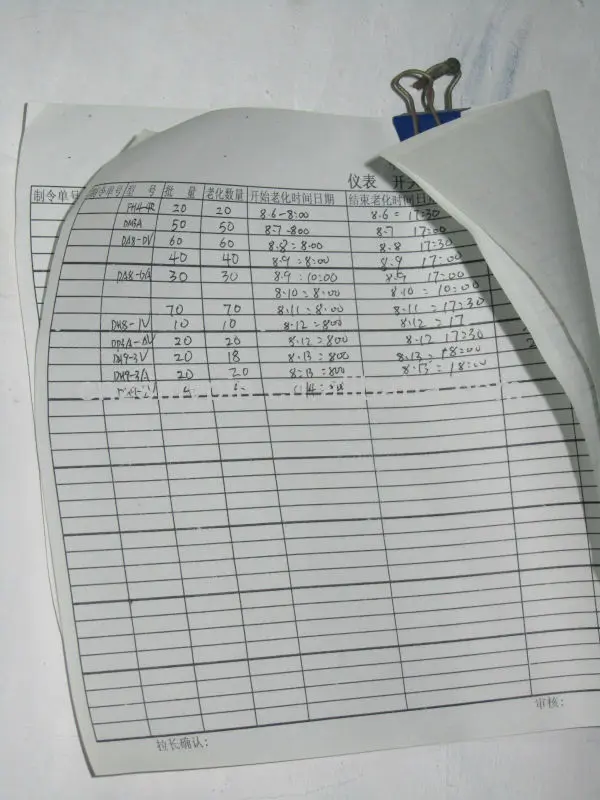 仪表 开
制令单号 制令单号 型 号 批 量 老化数量 开始老化时间日期 结束老化时间日
20 20 8.6-8:00 8.6 = 17:30
DM3A 50 50 8.7-800 8.7 17:00
DA8-DV 60 60 8.8=8:00 8.8 17:30
40 40 8.9=8:00 8.9 17:00
DA8-6A 30 30 8.9:10:00 8.9 17:00
8.10=8:00 8.10=10:00
70 70 8.11=8:00 8.11=17:30
DM8-1V 10 10 8.12=800 8.12=17
20 20 8.12=800 8.12 17:30
DM9-3V 20 18 8.13=800 8.13=18:00
DM9-3A 20 20 8.13=800 8.13=18:00
拉长确认: 审核: